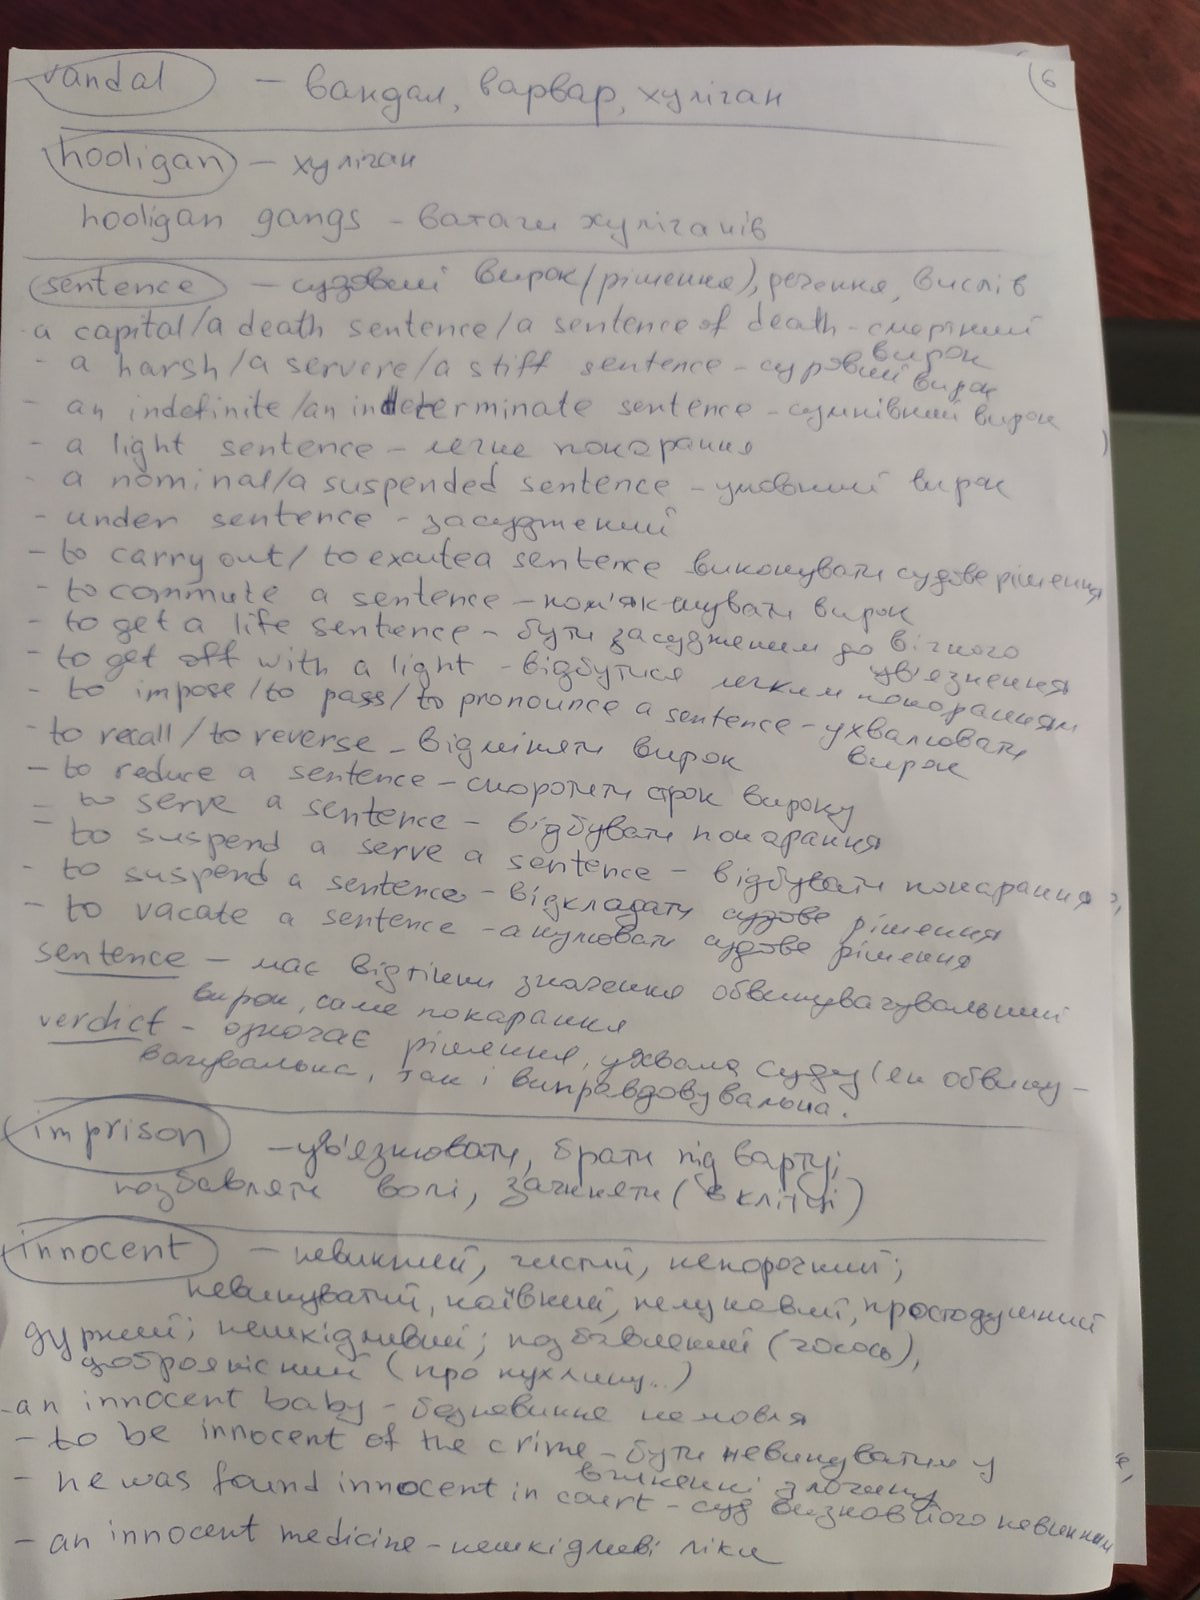 6
vandal – вандал, варвар, хуліган
hooligan – хуліган
hooligan gangs – ватаги хуліганів
sentence – судовий вирок (рішення), речення, вислів
a capital/a death sentence/a sentence of death – смертний
вирок
- a harsh/a servere/a stiff sentence – суровий вирок
- an indefinite/an indeterminate sentence – сумнівний вирок
- a light sentence – легке покарання
- a nominal/a suspended sentence – умовний вирок
- under sentence – засуджений
- to carry out/ to excutea sentence виконувати судове рішення
- to commute a sentence – пом'якшувати вирок
- to get a life sentence – бути засудженим до вічного
ув'язнення
- to get off with a light – відбутися легким покаранням
- to impose/to pass/to pronounce a sentence – ухвалювати
вирок
- to recall/to reverse – відміняти вирок
- to reduce a sentence – скоротити строк вироку
- to serve a sentence – відбувати покарання
- to suspend a serve a sentence – відбувати покарання
- to suspend a sentence – відкладати судове рішення
- to vacate a sentence – анулювати судове рішення
sentence – має відтінки значення обвинувачувальний
вирок, саме покарання
verdict – означає рішення, ухвала суду (як обвину-
вачувальна, так і виправдовувальна.
imprison – ув'язнювати, брати під варту;
позбавляти волі, зачиняти (в клітці)
innocent – невинний, чистий, непорочний;
невинуватий, наївний, нелукавий, простодушний
дурний; нешкідливий; позбавлений (чогось),
доброякісний (про пухлину..)
- an innocent baby – безневинне немовля
- to be innocent of the crime – бути невинуватим у
вчиненні злочину
- he was found innocent in court – суд визнав його невинним
- an innocent medicine – нешкідливі ліки